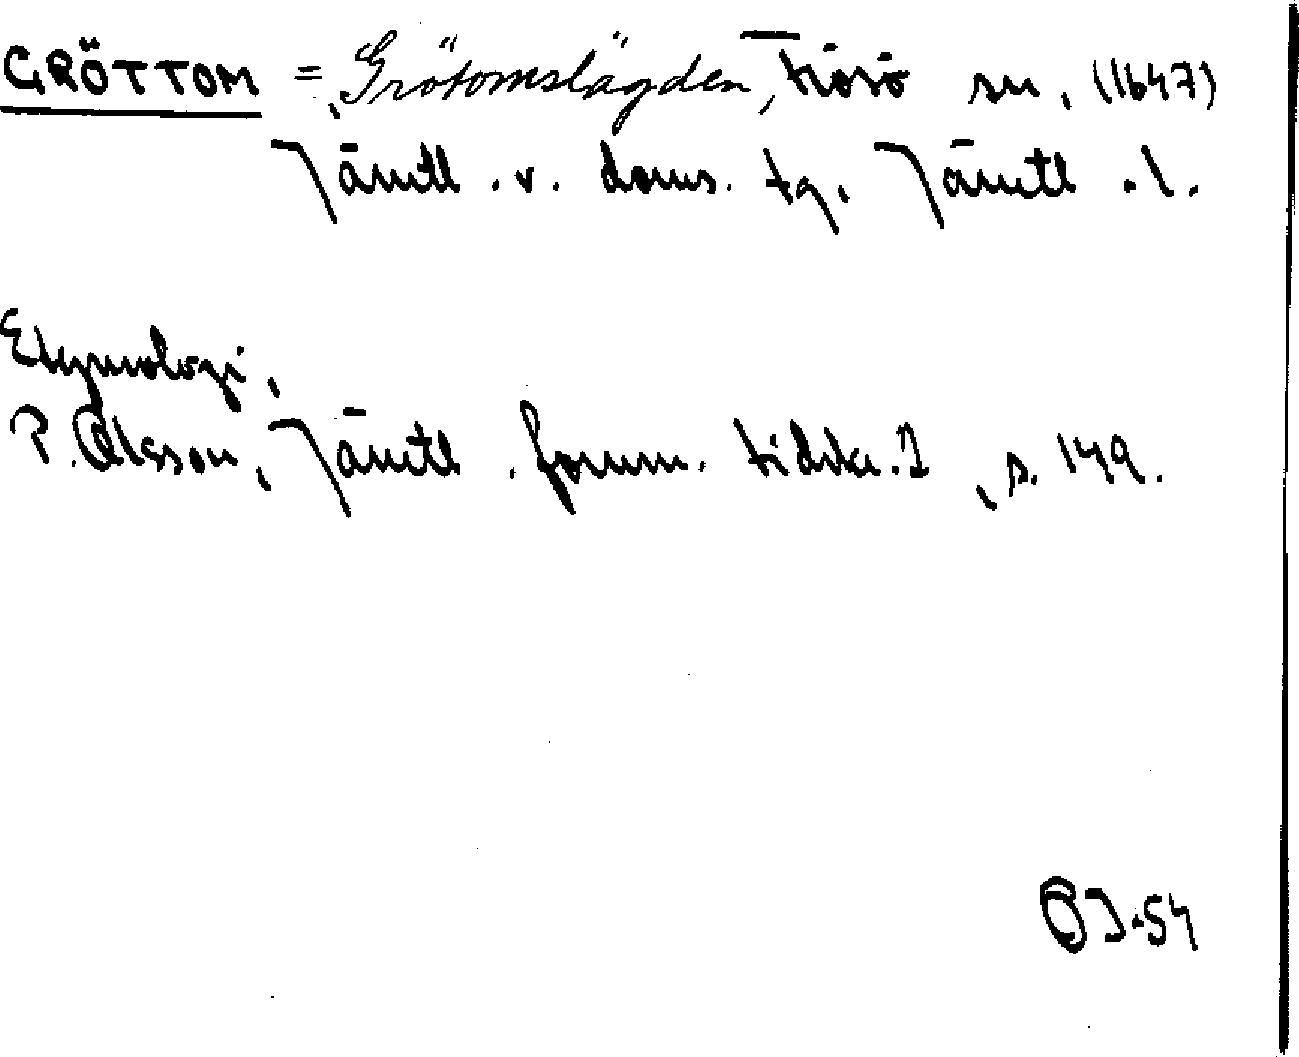 GRÖTTOM = Grötomslägden, Frösö sn, (1647)
Jämtl. v. doms. tg. Jämtl. l.
Etymologi,
P. Olsson, Jämtl. fornm. tidskr. I, s. 149.
ÖJ-54